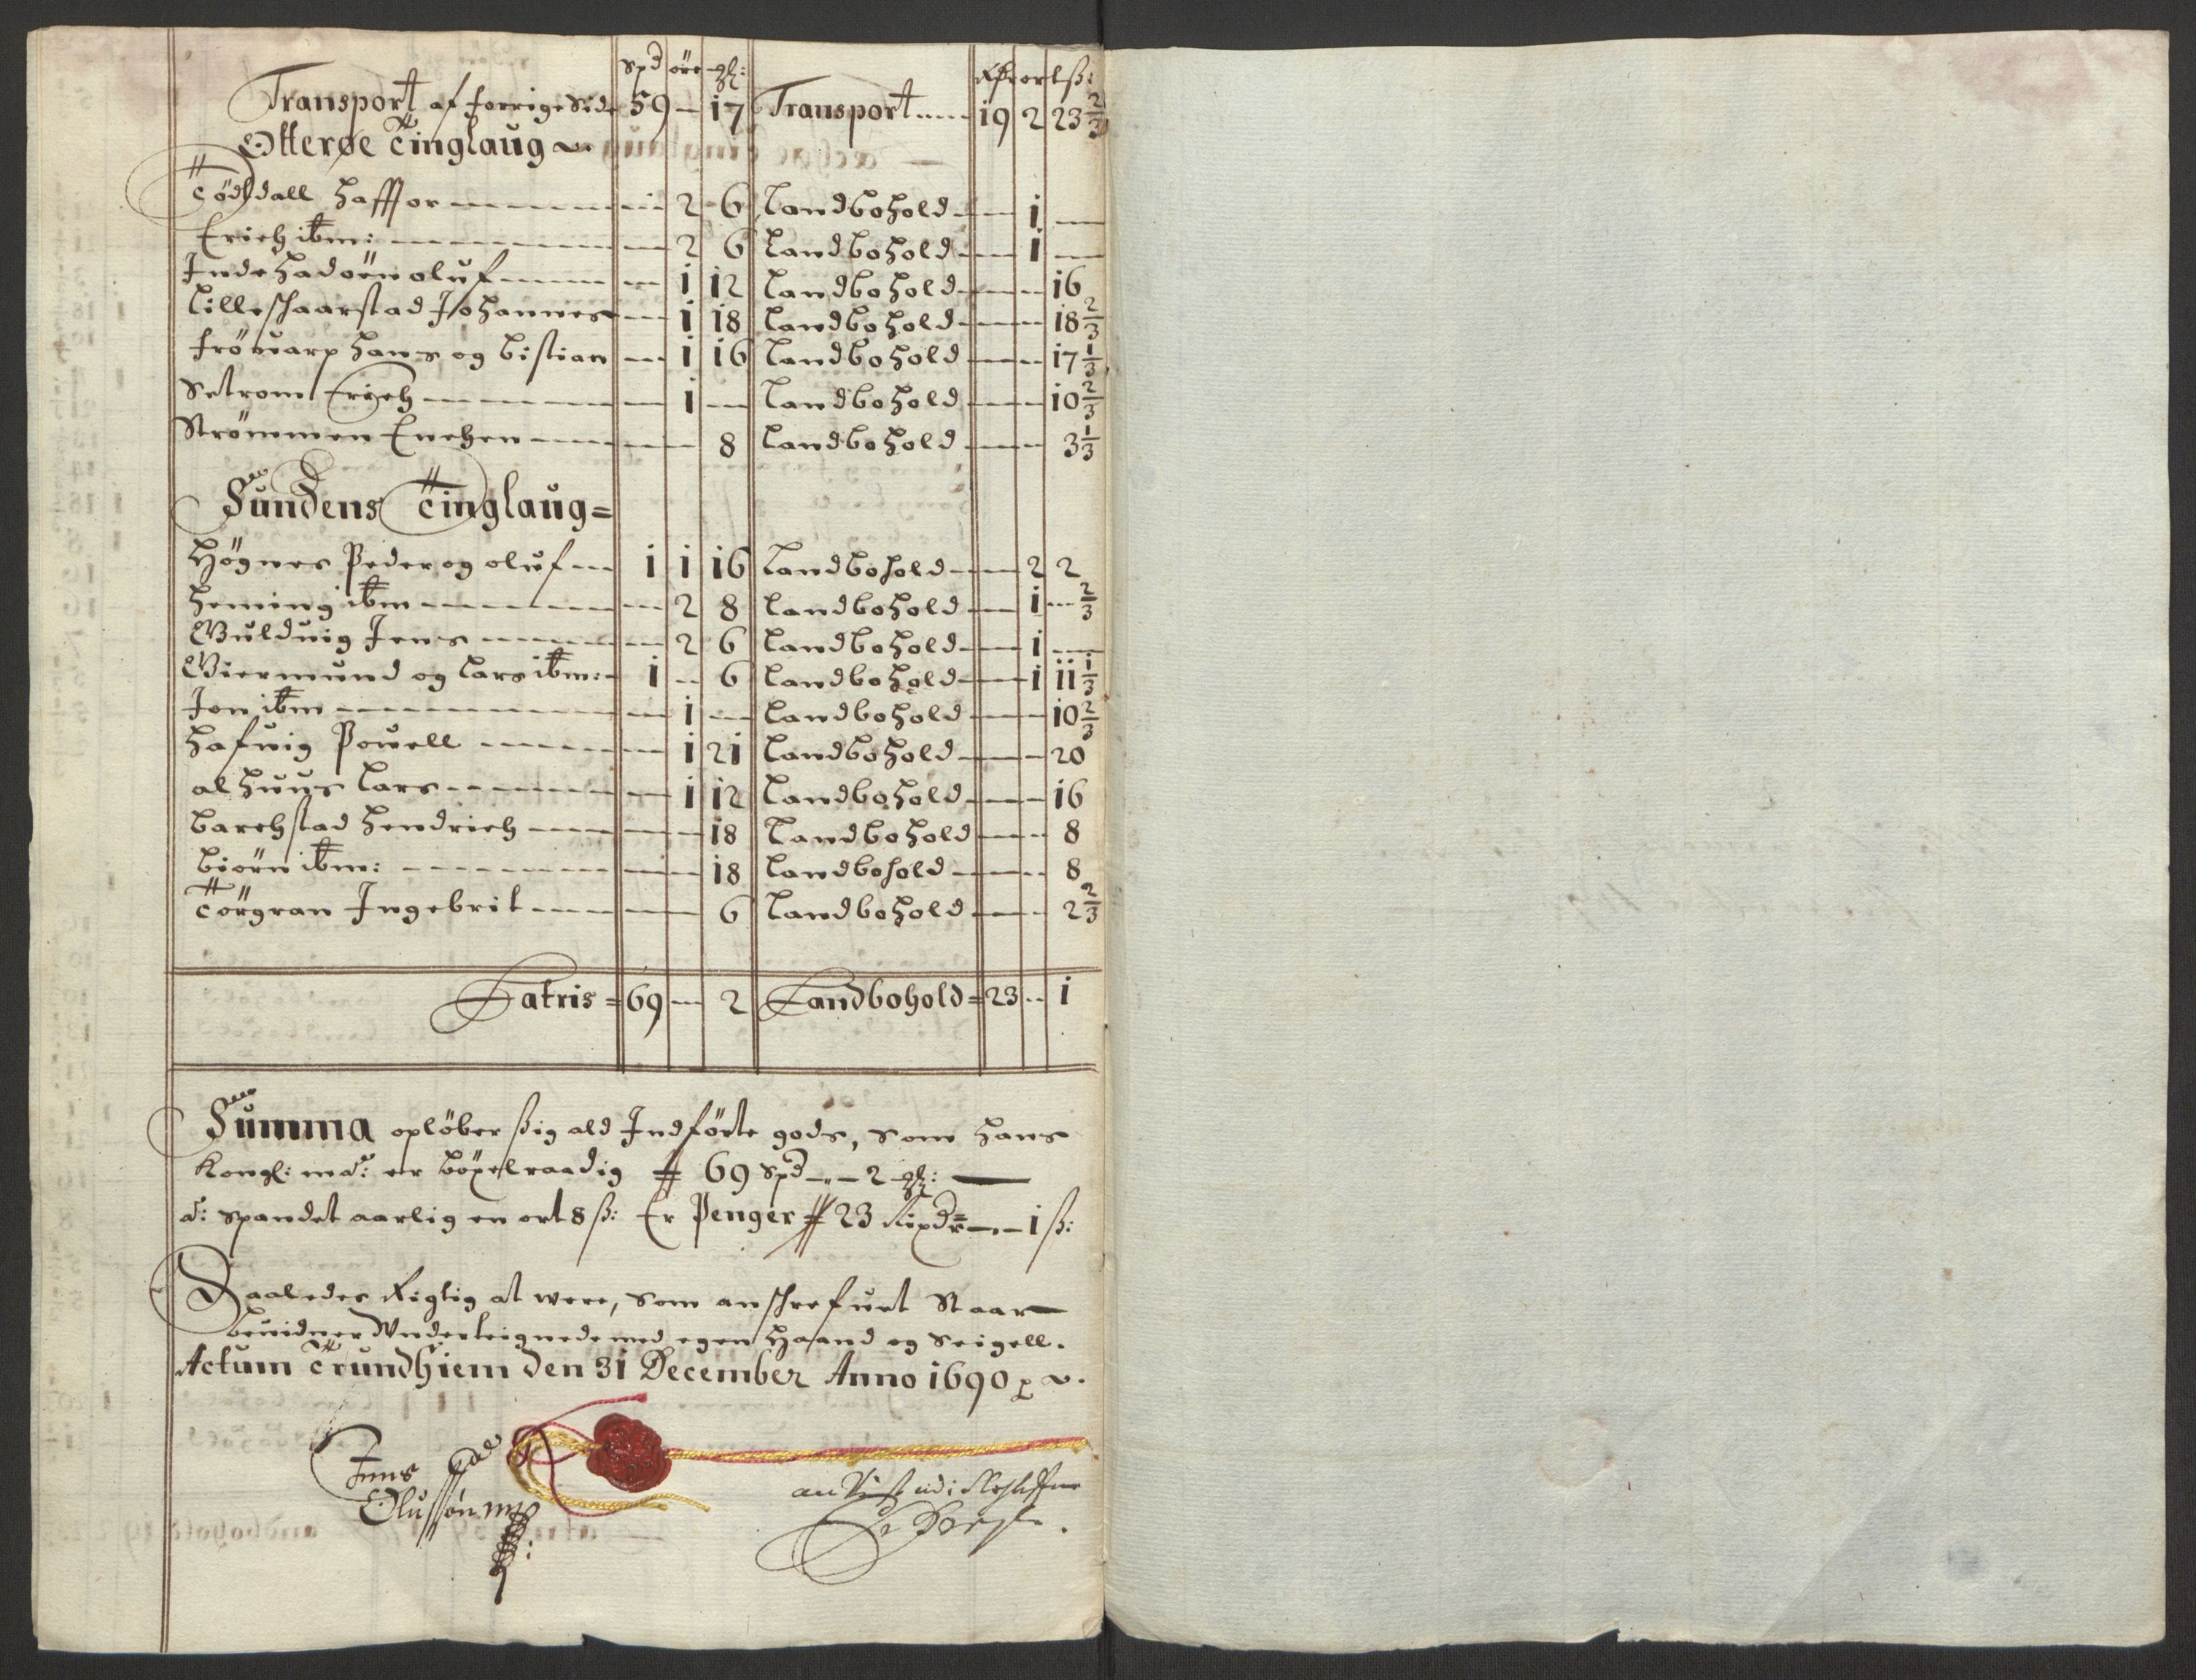 spd öre gl: Rdr ort ß:
Transport af forrige Side 59 – 17 Transport 19 2 23 2/3
Otterøe Tinglaug
Tödsdall Haffor – 2 6 Landbohold – 1 –
Erich ibm: – 2 6 Landbohold – 1 –
Inde Hadöen oluf – 1 12 Landbohold – – 16
Lilleschaarstad Johannes – 1 18 Landbohold – – 18 2/3
Frövarp Hans og Bistian – 1 16 Landbohold – – 17 1/3
Setrom Erich – 1 – Landbohold – – 10 2/3
Strömmen Enchen – – 8 Landbohold – – 3 1/3
Sundens Tinglaug =
Högnes Peder og oluf 1 1 16 Landbohold – 2 2
Heming ibm – 2 8 Landbohold – 1 – 2/3
Buldvig Jens – 2 6 Landbohold – 1 –
Viermund og Lars ibm: 1 – 6 Landbohold – 1 11 1/3
Jon ibm – 1 – Landbohold – – 10 2/3
Hafvig Povell – 1 21 Landbohold – – 20
alhuus Lars – 1 12 Landbohold – – 16
Barchstad Hendrich – – 18 Landbohold – – 8
Biörn ibm: – – 18 Landbohold – – 8
Törgran Ingebrit – – 6 Landbohold – – 2 2/3
Latris = 69 – 2 Landbohold = 23 – 1
Summa oplöber sig ald Indförte gods, som Hans
Kongl: maÿ: er böxelraadig # 69 spd – „ – 2 gl: –
a: spandet aarlig en ort 8 ß: Er Penger # 23 Rixdr – „ – 1 ß:
Saaledes Rigtig at were, som anschrefuet Staar
bevidner Underteignede med egen Haand og Seigell.
Actum Trundhiem den 31 December Anno 1690
Jens
Olussøn mp: